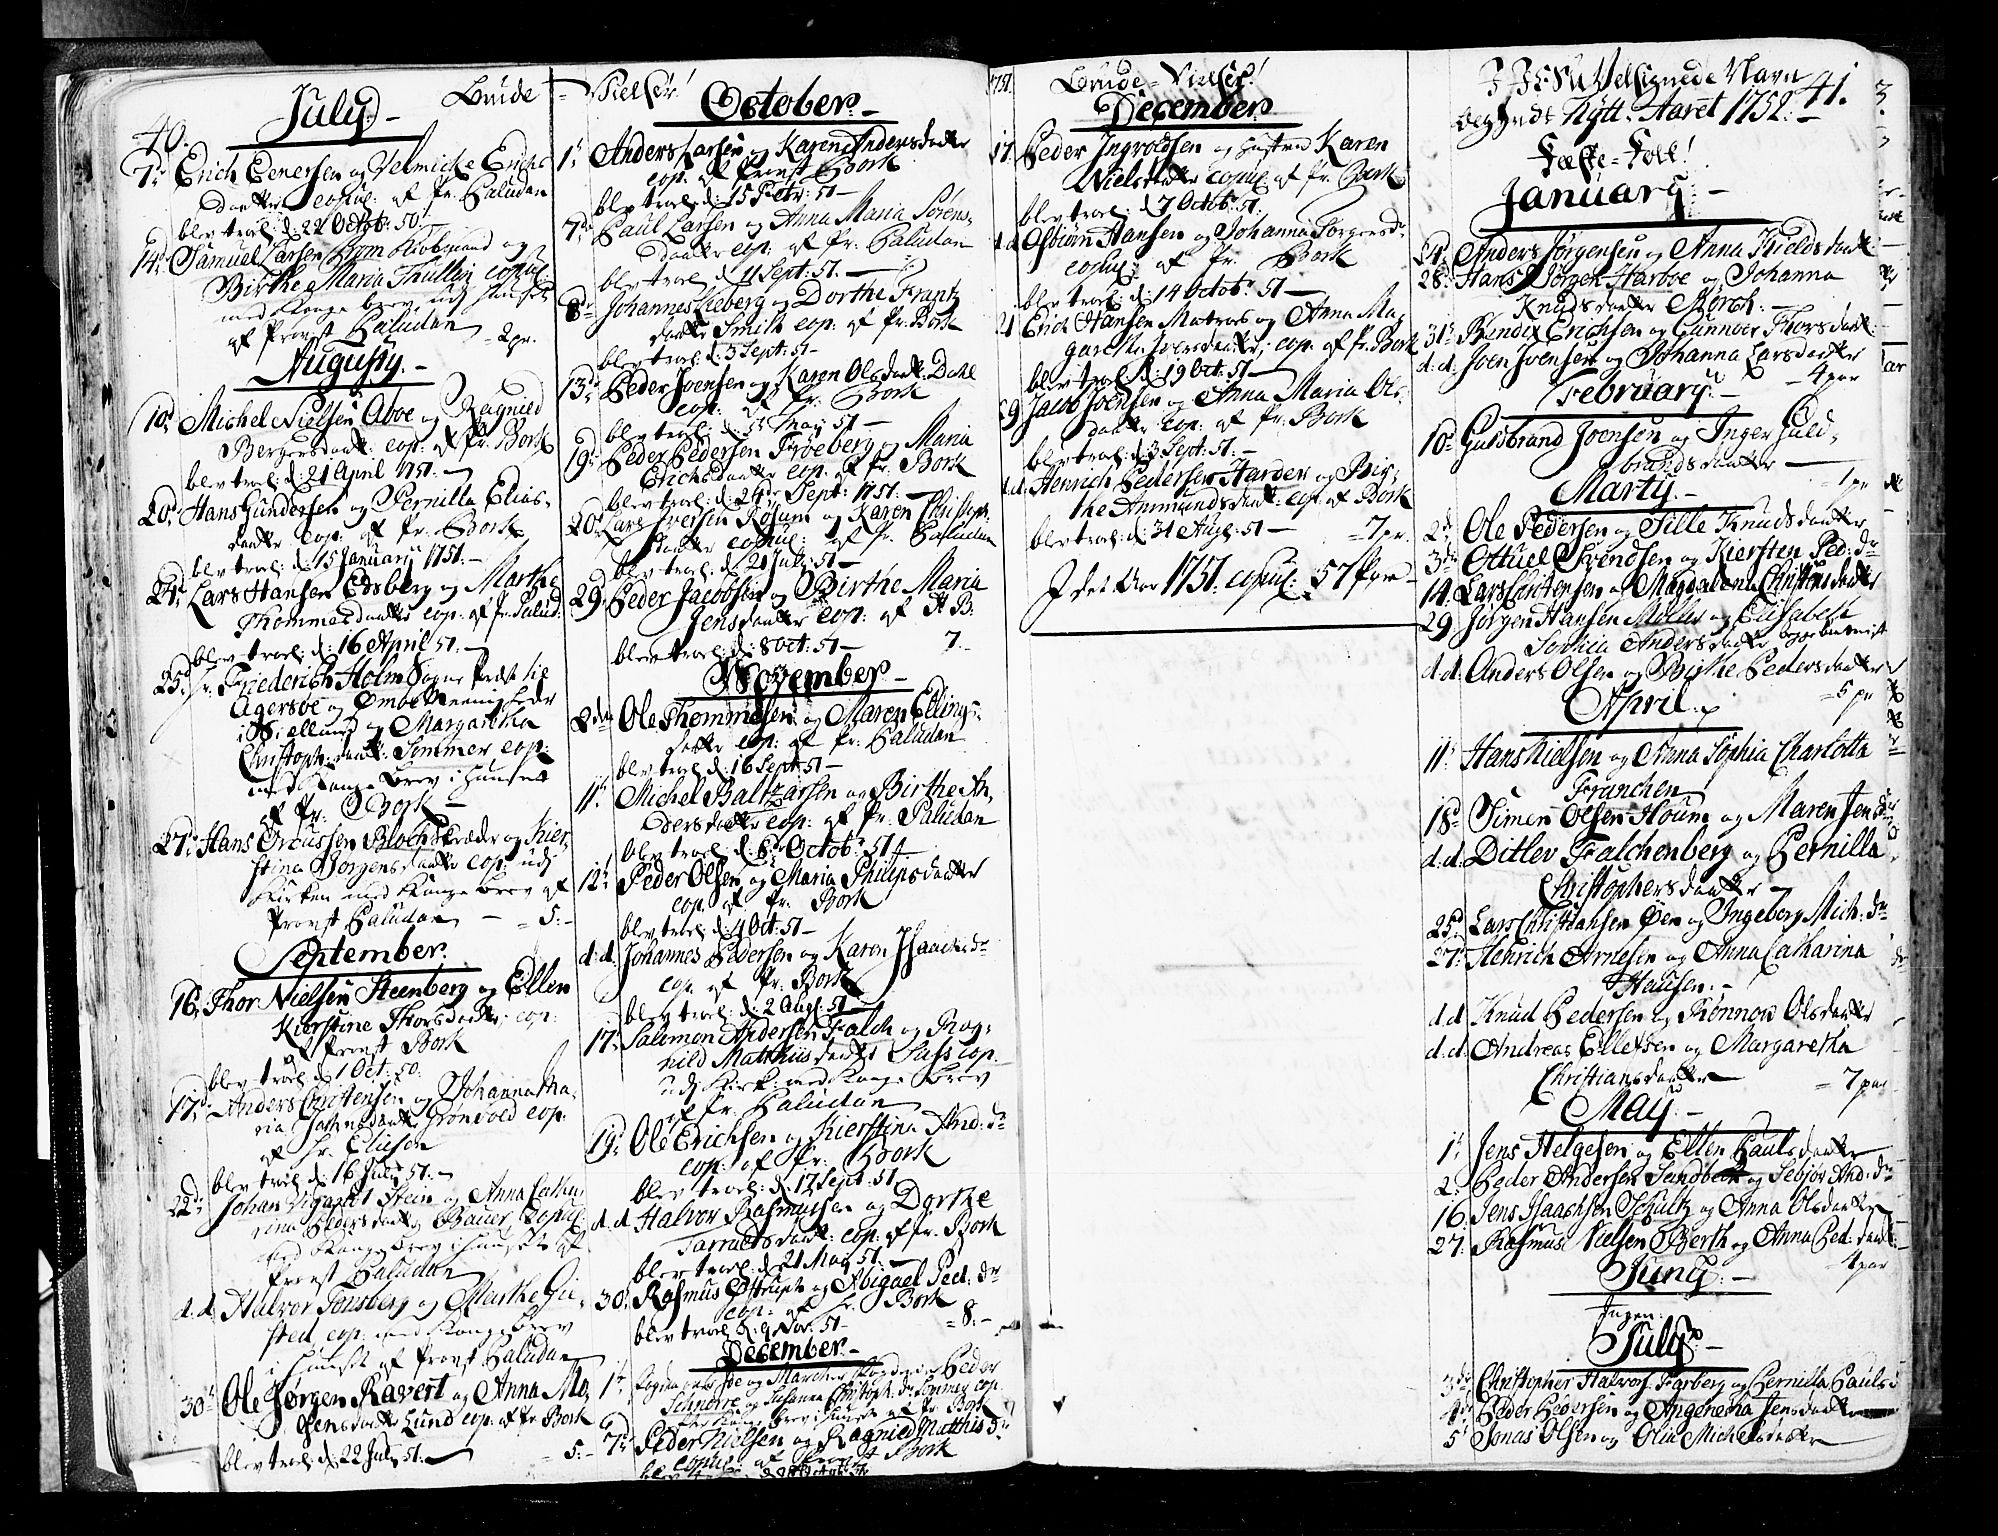 40.
Brude = Vielser!
July. -
7de Erich Enersen og Velmicke Erichs
daatter copul: af Pr: Paludan
blev trol: d: 22 Octob: 50. -
14d Samuel Larsen og
Birthe Maria Thullin copul:
med Konge brev udj Huuset
af Provst Paludan = 2 pr.
Augusty. -
10d Michel Nielsen Aboe og Ragnild
Bergersdaatt: cop: af Pr: Bork
blev trol: d: 21 April 1751. -
20d Hans Gundersen og Pernilla Elias-
daatter cop: af Pr: Bork
blev trol: d: 15 January 1751. -
24d Lars Hansen Edsberg og Marthe
Thommesdaatter cop: af Pr: Palud:
blev trol: d: 16 April 51. -
25d Hr. Friederich Holm Sogne Præst til
Agersøe og Omøe Meenigheder
i Siælland og Margaretha
Christoph: daatt: Semmer cop:
med Konge brev i Huuset
af Pr: Bork -
27d Hans Bloch Skræder og Kier-
stina Borgensdaatter cop: udj
Kirken med Konge brev af
Provst Paludan - = 5: -
September.
16. Thor Nielsen Steenberg og Ellen
Kierstine Thorsdaatter, cop:
af Provst Bork
blev trol: d: 1 Oct: 50.
17d Anders Christensen og Johanna Ma-
ria Grønvold cop:
af Hr: Eliesen
blev trol: d: 16 July 51. -
22d Johan Wigandt Stein og Anna Catha-
rina Pedersdaatter Bauer, copul:
med Konge brev i huuset af
Provst Paludan
d: d: Halvor Tonsberg og Marthe Gie-
sted cop: med Konge brev
i Huuset af Provst Paludan
30te Ole Jørgen Ravert og Anna Mo-
gensdaatter Lund cop: af Pr: Bork
blev trol: d: 22 July 51. - = 5: -
October. -
1t Anders Larsen og Karen Andersdaatter
cop: af Provst Bork
blev trol: d: 15 51 -
7de Paul Larsen og Anna Maria Sørens-
daatter cop: af Pr: Paludan
blev trol: d: 11 Sept: 51. -
8de Johannes Lieberg og Dorthe Frantz
daatter Smith cop: af Pr: Bork
blev trol: d: 3 Sept: 51 -
13d Peder Joensen og Karen Olsdaatt: Dahl
cop: af Pr: Bork
blev trol: d: May 51 -
19d Peder Pedersen Frøeberg og Maria
Erichsdaatter cop: af Pr: Bork
blev trol: d: 24de Sept: 1751. -
20d Lars Iversen Rosum og Karen Christoph:
daatter copul: af Pr: Paludan
blev trol: d: 20 July 51 -
29. Peder Jacobsen og Birthe Maria
Jensdaatter cop: af H B.
blev trol: d: 8 Oct: 51 - 7. -
November. -
2den Ole Thommesen og Maren Elling-
daatter cop: af Pr: Paludan
blev trol: d: 16 Sept: 51 -
11t Michel Baltzarsen og Birthe An-
dersdaatter cop: af Pr: Paludan
blev trol: d: 6 Octob: 51 -
12t Peder Olsen og Maria Philipsdaatter
cop: af Pr: Bork
blev trol: d: 4 Oct: 51 -
d: d: Johannes Pedersen og Karen Isaachs: dr
cop: af Pr: Bork
blev trol: d: 2 Aug: 51 -
17d Salomon Andersen Falch og Rag-
nild Matthiisdaatter Suhs cop.
udj Kirk: med Konge Brev
af Pr: Paludan
19d Ole Erichsen og Kierstina And: dr
cop: af Pr: Bork
blev trol: d: 12 Sept: 51
d. d Halvor Rasmussen og Dorthe
Tarraldsdaatt: cop: af Pr. Bork
blev trol: d: 21 May 51. -
30. Rasmus Estrup og Abigael Ped: dr
cop: af Hr: Bork
blev trol: d: 9 Nov: 51 - = 8. -
December. -
1t og Peder
Schnorre og Susanna Christoph: dr Semmer cop.
med Konge brev i huuset af Pr: Bork
7d Peder Nielsen og Ragnild Matthis dr
copul: af Provst Bork
1751.
Brude = Vielser!
December.
17. Peder Ingvoldsen og Hustrue Karen
Nielsdaatter copul: af Pr: Bork
blev trol: d: 7 Octob: 51.
d. d Asbiørn Hansen og Johanna Torgersdr
copul: af Pr: Bork
blev trol: d: 14 Octob: 51 -
21 Erich Hansen Matros og Anna Ma-
garetha Iversdaatter, cop: af Pr: Bork
blev trol: d: 19 Oct: 51 -
29 Jacob Joensen og Anna Maria Ols-
daatter cop: af Pr: Bork
blev trol: d: 3 Sept: 51. -
d. d. Henrich Pedersen Harder og Bir-
the Ammundsdaatt: cop: af Bork
blev trol: d: 31 Aug: 51 - = 7 pr.
I det Aar 1751. copul: 57 Par -
41.
I JESU Velsignede Navn
begyndes Nytt-Aaret 1752. -
Fæste = Folk!
January. -
24. Anders Jørgensen og Anna Kieldsdaatt:
28d Hans Jørgen Harboe og Johanna
Knudsdaatter Storch. -
31t Bendix Erichsen og Gunnoer Thorsdaatt:
d. d: Joen Joensen og Johanna Larsdaatter
- 4 par
February. -
10d Guldbrand Joensen og Inger Guld-
brandsdaatter - - 1 pr
Marty. -
2d Ole Pedersen og Sille Knudsdaatter
3d Ottuel Svendsen og Kiersten Ped: dr
14. Lars Christensen og Magdalena Christensdaatter
29 Jørgen Hansen Møller og Elisabeth
Sophia Andersdaatter
d. d: Anders Olsen og Birthe Pedersdaatter
= 5 pr
April.
11t Hans Nielsen og Anna Sophia Charlotta
Franchen
18d Simen Olsen Houm og Maren Jens dr
d. d: Ditlev Falchenberg og Pernilla
Christophersdaatter -
25d Lars Christiansen Øen og Ingeborg Mich: dr
27. Henrich Arnesen og Anna Catharina
Hausen. -
d. d Knud Pedersen og Rønnow Olsdaatter
d: d: Andreas Ellefsen og Margaretha
Christiansdaatter = 7 par
May. -
1t Jens Helgesen og Ellen Paulsdaatter
2. Peder Andersen Sandbech og Sebjør And: dr
16 Jens Isaachsen Schultz og Anna Olsdaatter
27. Rasmus Nielsen Berth og Anna Ped: daatt:
- 4 par
Juny. -
Ingen.
July. -
3de Christopher Halvors: Farberg og Pernilla Pauls d
4d Peder Pedersen og Angenetha Jensdaatter
5t Jonas Olsen og Olia Michelsdaatter